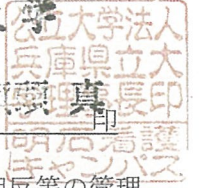 公立大学法人
兵庫県立大
理事長印
顕 真
印
明石看護
キャンパス
等の管理